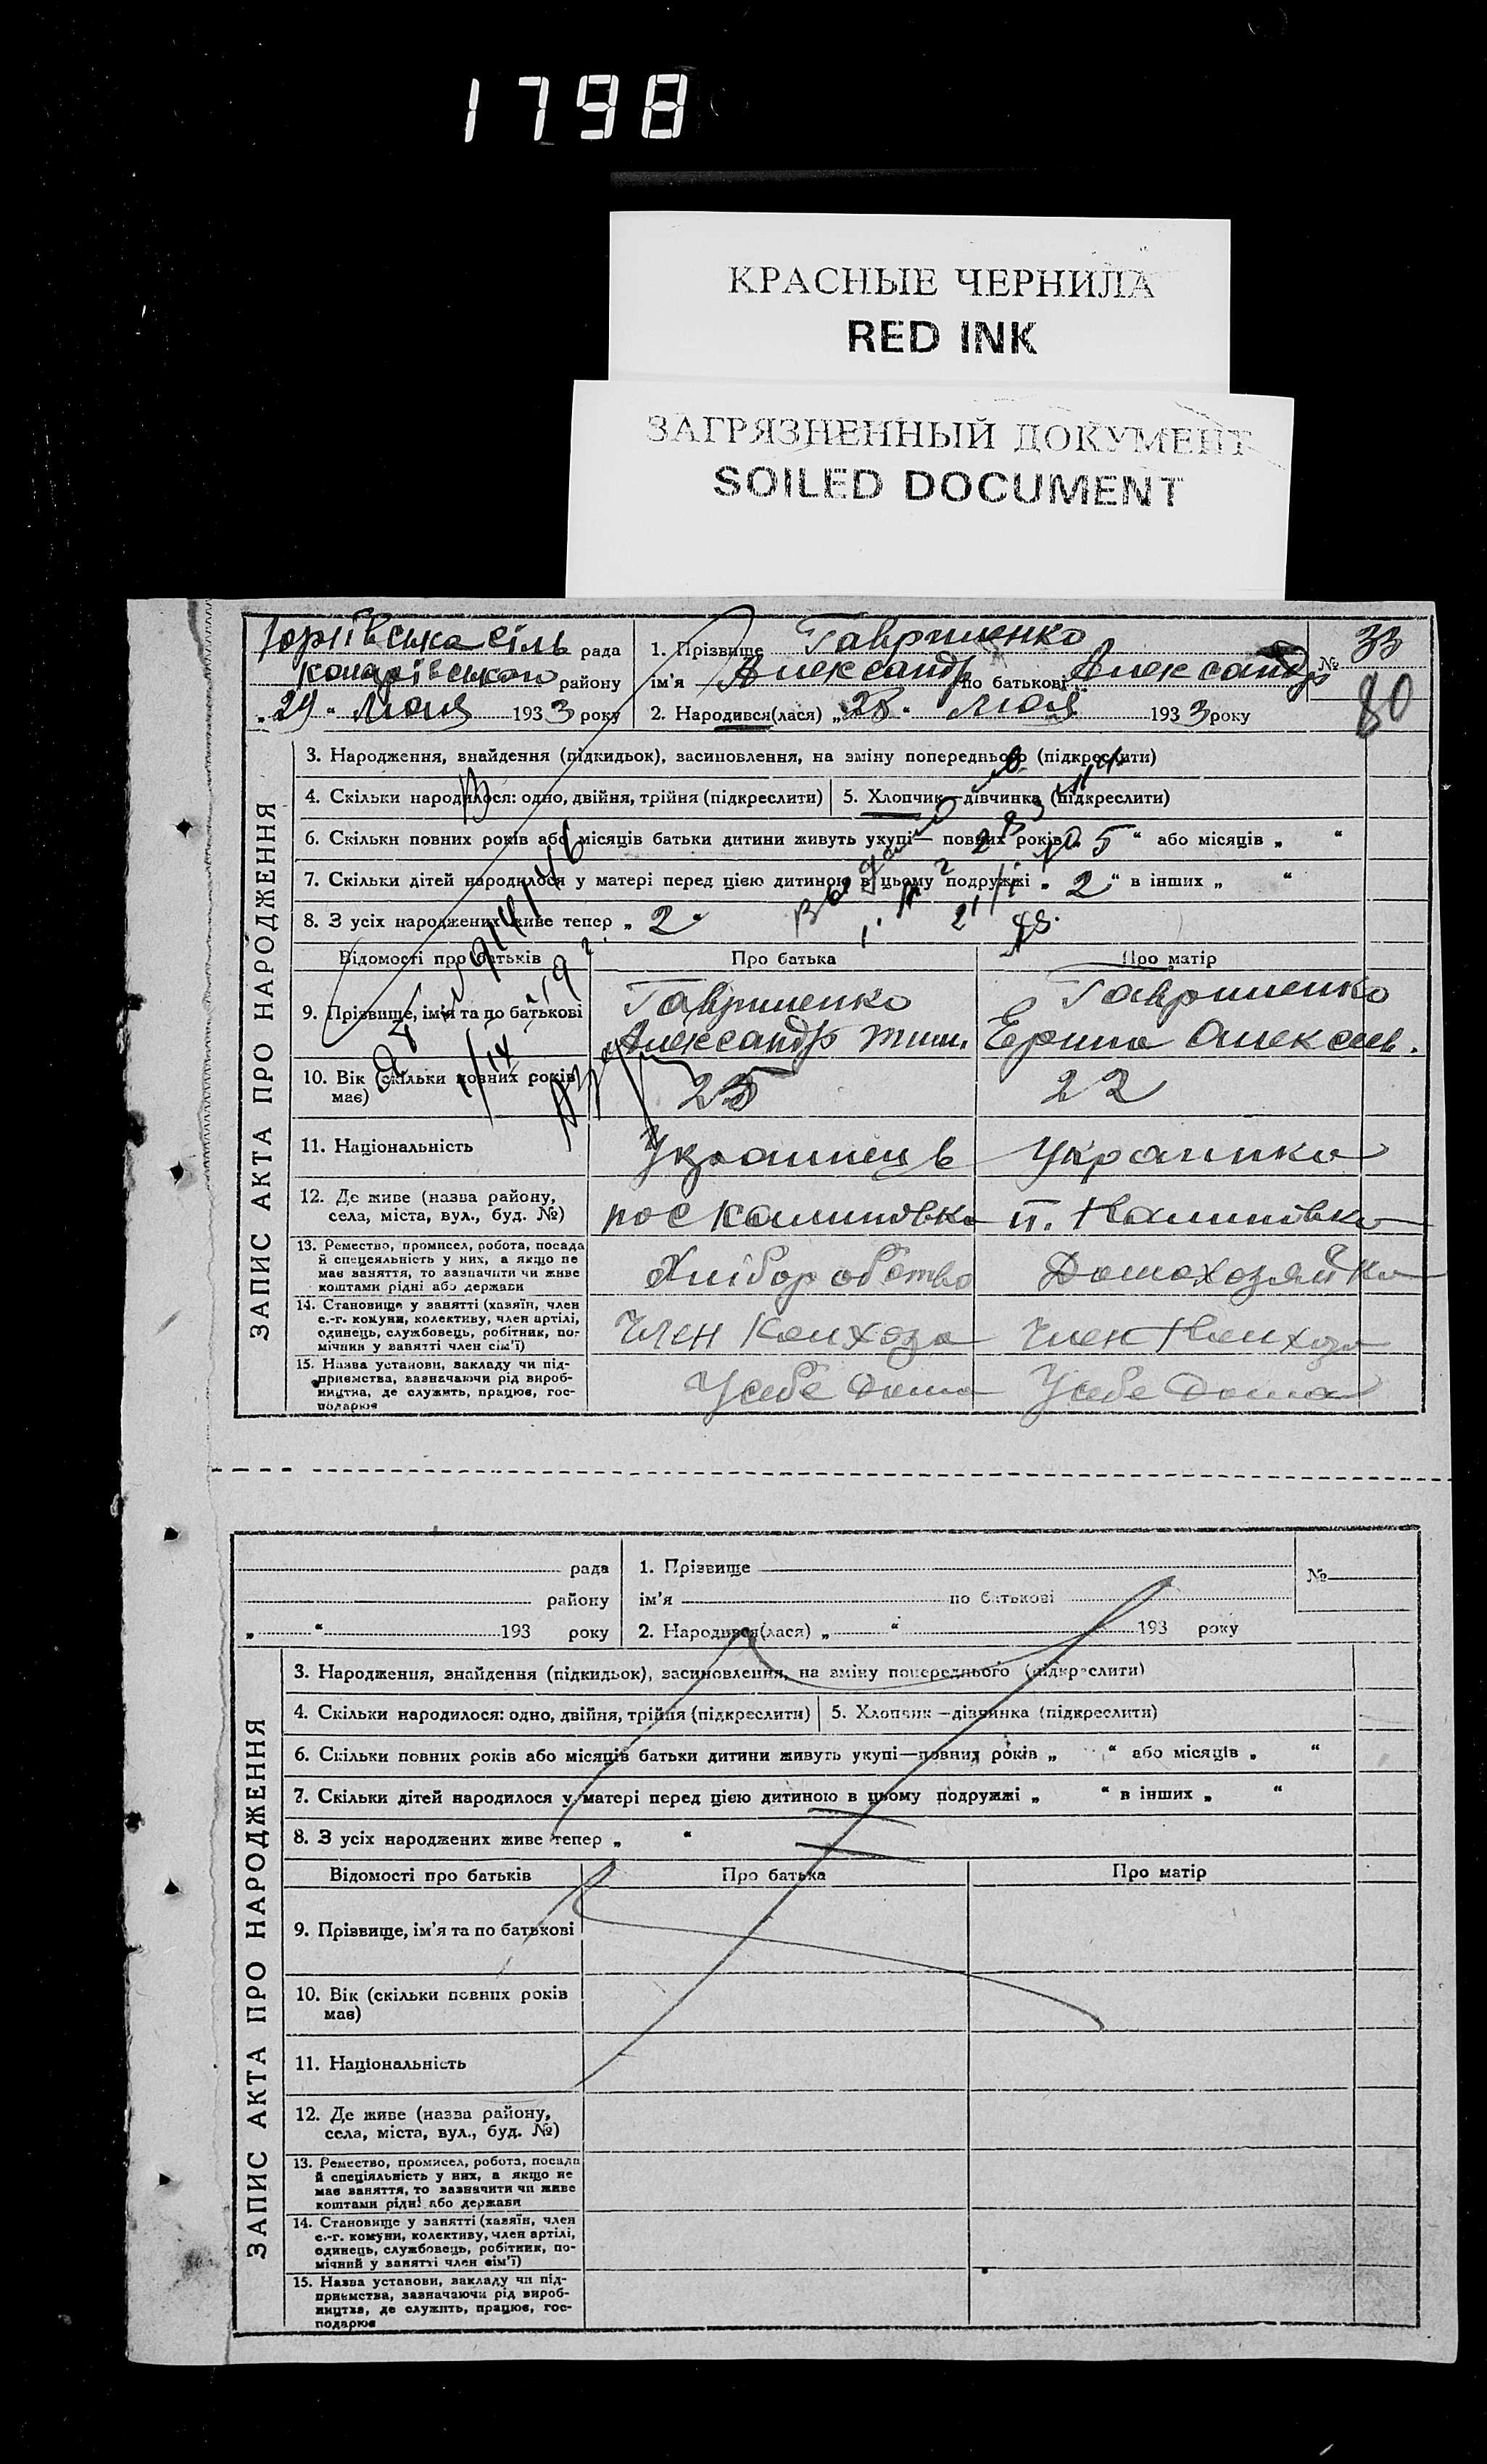 1798
КРАСНЫЕ ЧЕРНИЛА
RED INK
ЗАГРЯЗНЕННЫЙ ДОКУМЕНТ
SOILED DOCUMENT
рада
району
„29“ Мая 1933 року
1. Прізвище Гавриленко
ім'я Александр по батькові Александр
2. Народився(лася) „28“ мая 1933 року
№ 33
80
ЗАПИС АКТА ПРО НАРОДЖЕННЯ
3. Народження, знайдення (підкидьок), засиновлення, на зміну попереднього (підкреслити)
4. Скільки народилося: одно, двійня, трійня (підкреслити) 5. Хлопчик—дівчинка (підкреслити)
6. Скільки повних років або місяців батьки дитини живуть укупі— повних років „5“ або місяців „ “
7. Скільки дітей народилося у матері перед цією дитиною в цьому подружжі „2“ в інших „ “
8. З усіх народжених живе тепер „2“
Відомості про батьків Про батька Про матір
9. Прізвище, ім'я та по батькові
Гавриленко
Александр Тим.
Гавриленко
10. Вік (скільки повних років
має)
22
11. Національність
Українець
Украинка
12. Де живе (назва району,
села, міста, вул., буд. №)
пос Калиновка
п. Калиновка
13. Ремество, промисел, робота, посада
й спеціяльність у них, а якщо не
має заняття, то зазначити чи живе
коштами рідні або держави
Хліборобство
Домохозяйка
14. Становище у занятті (хазяїн, член
с.-г. комуни, колективу, член артілі,
одинець, службовець, робітник, по-
мічний у занятті член сім'ї)
Член Колхоза
Член Колхоза
15. Назва установи, закладу чи під-
приємства, зазначаючи рід вироб-
ництва, де служить, працює, гос-
подарює
У себе дома
У себе дома
рада
району
„ “ 193 року
1. Прізвище
ім'я по батькові
2. Народився(лася) „ “ 193 року
№
ЗАПИС АКТА ПРО НАРОДЖЕННЯ
3. Народження, знайдення (підкидьок), засиновлення, на зміну попереднього (підкреслити)
4. Скільки народилося: одно, двійня, трійня (підкреслити) 5. Хлопчик —дівчинка (підкреслити)
6. Скільки повних років або місяців батьки дитини живуть укупі—повних років „ “ або місяців „ “
7. Скільки дітей народилося у матері перед цією дитиною в цьому подружжі „ “ в інших „ “
8. З усіх народжених живе тепер „ “
Відомості про батьків Про батька Про матір
9. Прізвище, ім'я та по батькові
10. Вік (скільки повних років
має)
11. Національність
12. Де живе (назва району,
села, міста, вул., буд. №)
13. Ремество, промисел, робота, посада
й спеціяльність у них, а якщо не
має заняття, то зазначити чи живе
коштами рідні або держави
14. Становище у занятті (хазяїн, член
с.-г. комуни, колективу, член артілі,
одинець, службовець, робітник, по-
мічний у занятті член сім'ї)
15. Назва установи, закладу чи під-
приємства, зазначаючи рід вироб-
ництва, де служить, працює, гос-
подарює